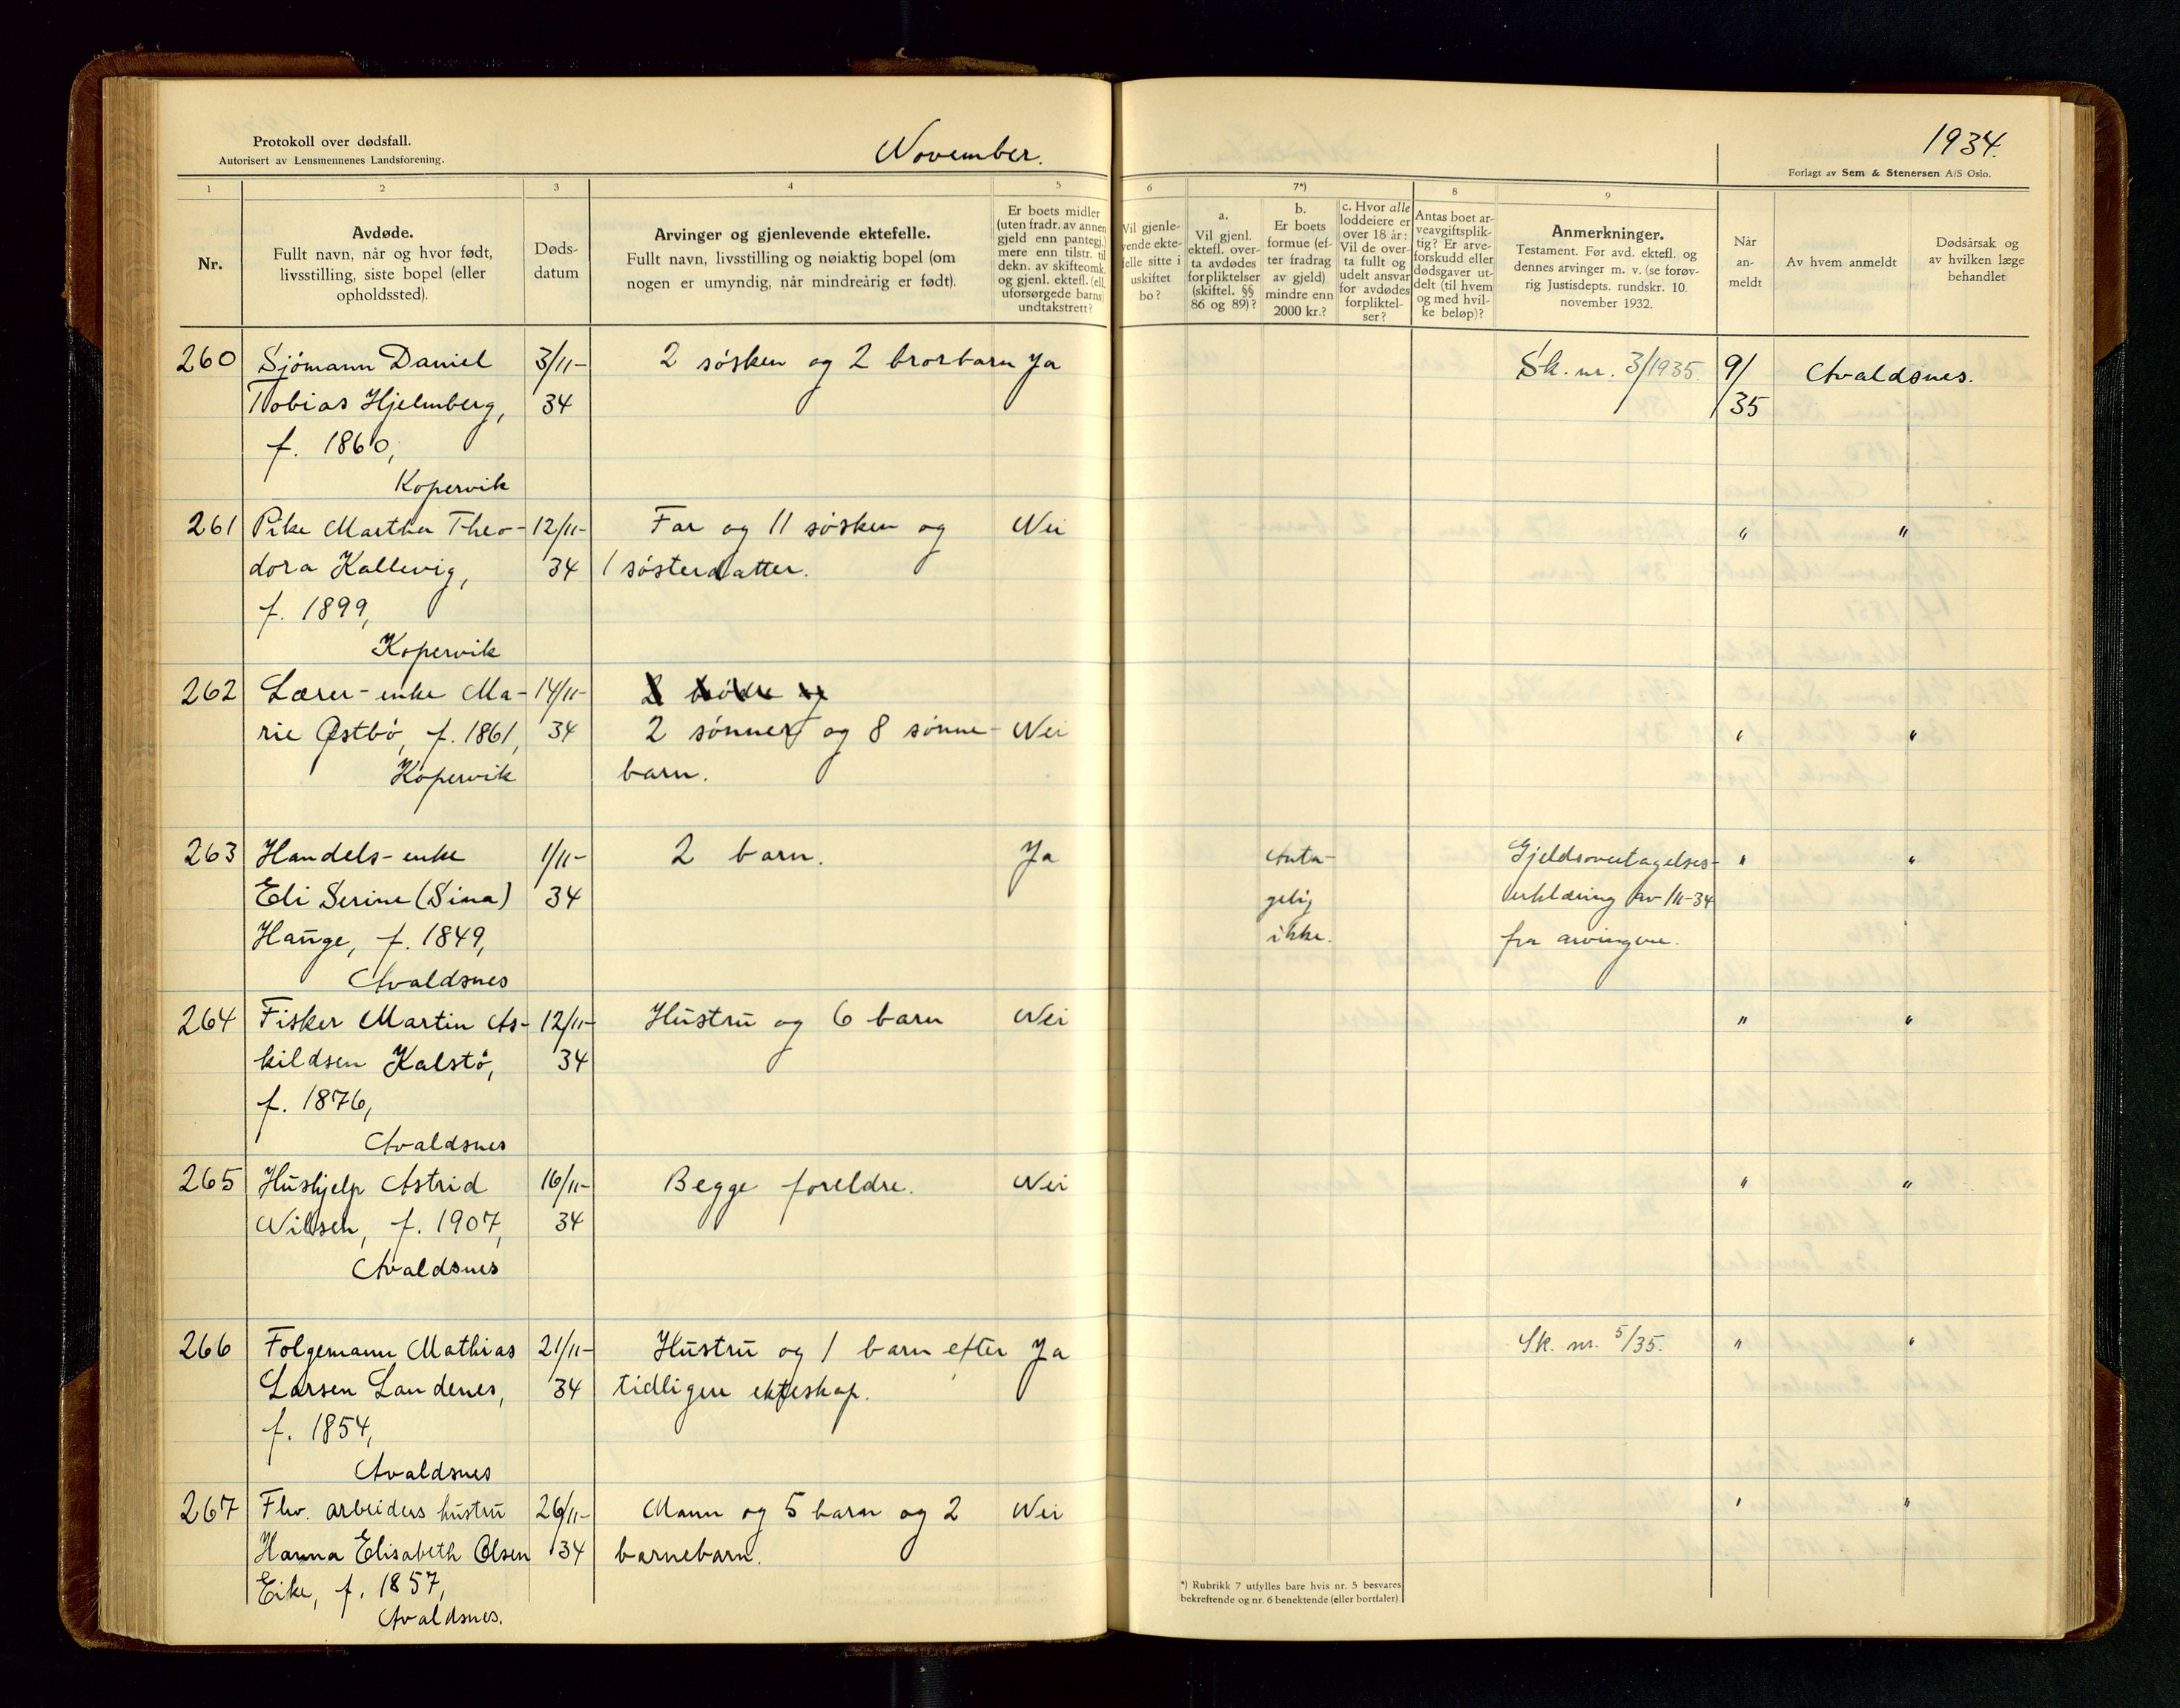 Protokoll over dødsfall.
Autorisert av Lensmennenes Landsforening.
November.
1934.
Forlagt av Sem & Stenersen A/S Oslo.
1 2 3 4 5 6 7*) 8 9
Nr.
Avdøde.
Fullt navn, når og hvor født,
livsstilling, siste bopel (eller
opholdssted).
Døds-
datum
Arvinger og gjenlevende ektefelle.
Fullt navn, livsstilling og nøiaktig bopel (om
nogen er umyndig, når mindreårig er født).
Er boets midler
(uten fradr. av annen
gjeld enn pantegj.)
mere enn tilstr. til
dekn. av skifteomk.
og gjenl. ektef. (ell.
uforsørgede barns)
undtakstrett?
Vil gjenle-
vende ekte-
felle sitte i
uskiftet
bo?
a.
Vil gjenl.
ektefl. over-
ta avdødes
forpliktelser
(skiftel. §§
86 og 89)?
b.
Er boets
formue (ef-
ter fradrag
av gjeld)
mindre enn
2000 kr.?
c. Hvor alle
loddeiere er
over 18 år:
Vil de over-
ta fullt og
udelt ansvar
for avdødes
forpliktel-
ser?
Antas boet ar-
veavgiftsplik-
tig? Er arve-
forskudd eller
dødsgaver ut-
delt (til hvem
og med hvil-
ke beløp)?
Anmerkninger.
Testament. Før avd. ektefl. og
dennes arvinger m. v. (se forøv-
rig Justisdepts. rundskr. 10.
november 1932.
Når
an-
meldt
Av hvem anmeldt
Dødsårsak og
av hvilken læge
behandlet
260 Sjömann Daniel 3/11- 2 søsken og 2 brorbarn Ja Sk. nr. 3/1935. 9/ Avaldsnes.
Tobias Hjelmberg, 34 /35
f. 1860,
Kopervik
261 Pike Martha Theo- 12/11- Far og 11 søsken og Nei " "
dora Kallevig, 34 1 søsterdatter.
f. 1899,
Kopervik
262 Lærer-enke Ma- 14/11- 2 brødre og
rie Østbø, f. 1861, 34 2 sønner og 8 sønne- Nei " "
Kopervik barn.
263 Handels-enke 1/11- 2 barn. Ja Anta- Gjeldsovertagelses- " "
Eli Serine (Sina) 34 gelig erklæring av 1/11-34
Hauge, f. 1849, ikke. fra arvingene.
Avaldsnes
264 Fisker Martin As- 12/11- Hustru og 6 barn Nei " "
kildsen Kalstø, 34
f. 1876,
Avaldsnes
265 Hushjelp Astrid 16/11- Begge foreldre. Nei " "
Nilsen, f. 1907, 34
Avaldsnes
266 Folgemann Mathias 21/11- Hustru og 1 barn efter Ja Sk. nr. 5/35. " "
Larsen Landenes, 34 tidligere ekteskap.
f. 1854,
Avaldsnes
267 Fhv. arbeiders hustru 26/11- Mann og 5 barn og 2 Nei " "
Hanna Elisabeth Olsen 34 barnebarn.
Eike, f. 1857,
Avaldsnes.
*) Rubrikk 7 utfylles bare hvis nr. 5 besvares
bekreftende og nr. 6 benektende (eller bortfaler)